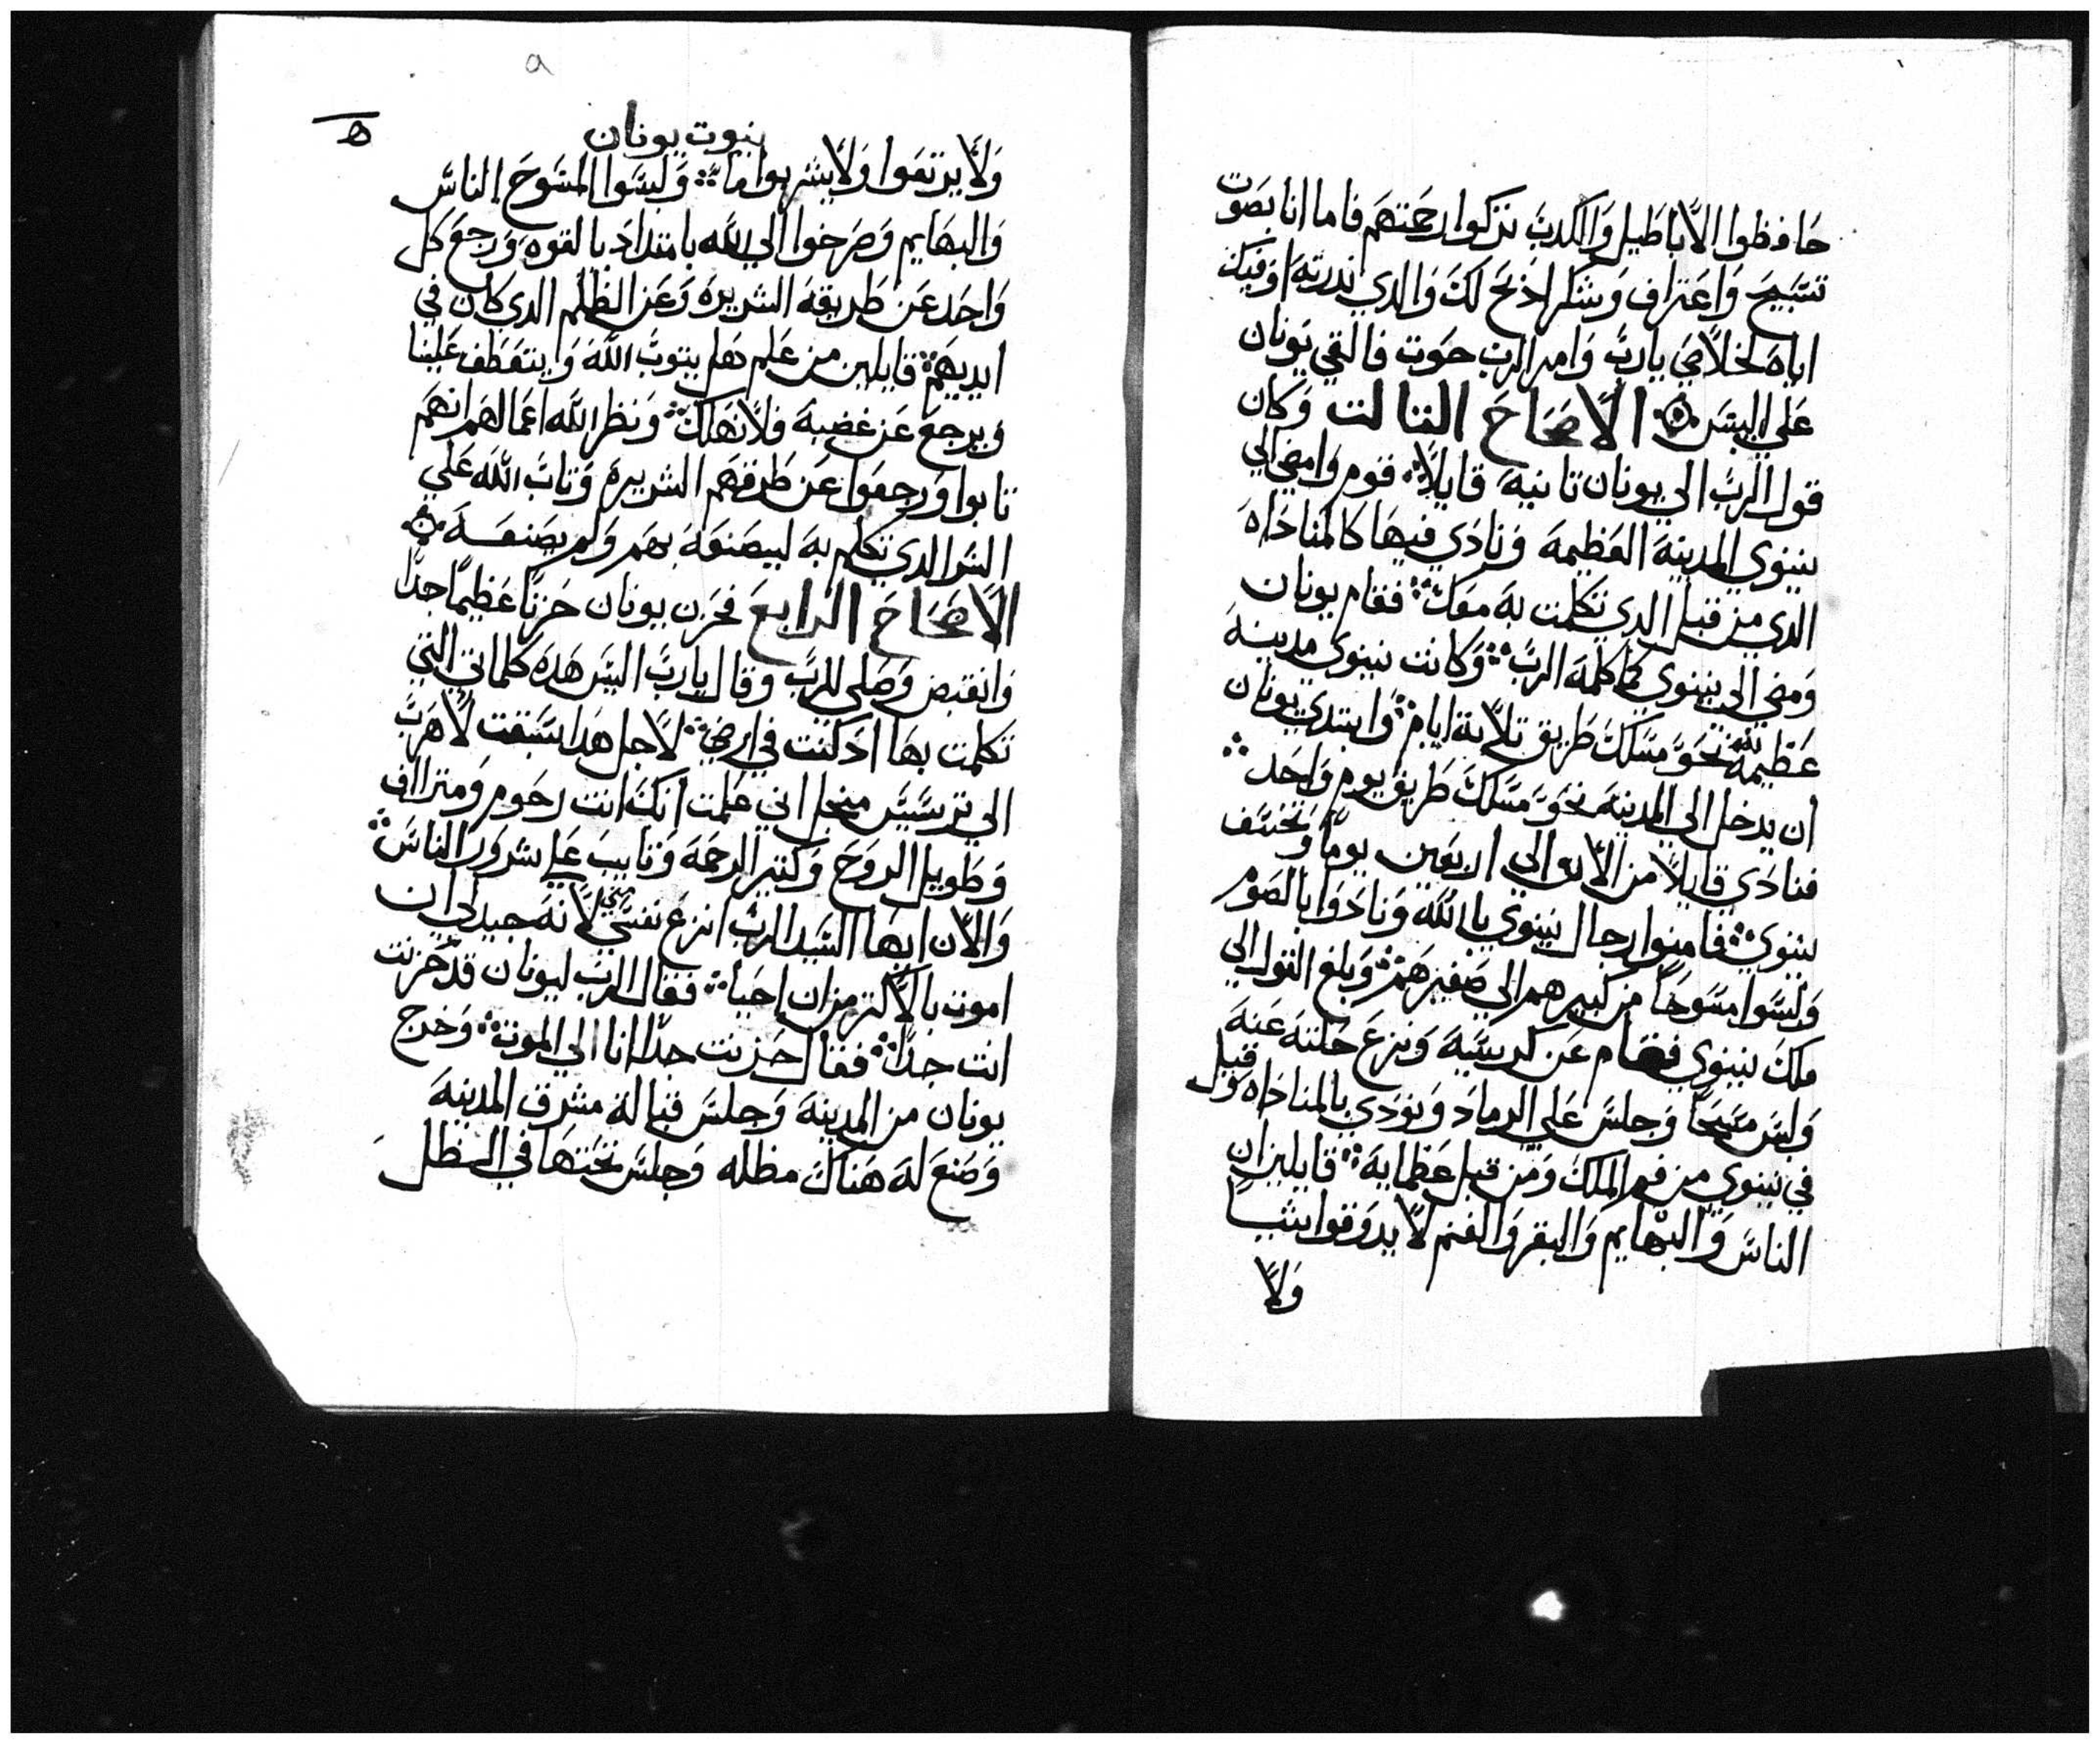 حافظوا الاباطيل والكدب تركوا رحمتهم فاما انا بصوت
تسبيح واعتراف وشكر ادبح لك والدي ندرته اوفيك
اياه لخلاصي يارب وامر الرب حوت فالقي يونان
علي اليبس الاصحاح التالت وكان
قول الرب الي يونان تانيه قايلاً قوم وامضي الي
نينوي المدينه العظيمه ونادي فيها كالمناداه
الدي من قبل الدي تكلمت به معك فقام يونان
ومضي الي نينوي كما كلمه الرب وكانت نينوي مدينه
عظيمه لله نحو مسلك طريق تلاتة ايام وابتدي يونان
ان يدخل الي المدينه نحو مسلك طريق يوم واحد
فنادي قايلاً من الان والي اربعين يوماً وتخسف
نينوي فامنوا رجال نينوي بالله ونادوا بالصوم
ولبسوا مسوحاً من كبيرهم الي صغيرهم وبلغ القول الي
ملك نينوي فقام عن كرسيه ونزع حلته عنه
ولبس مسحاً وجلس علي الرماد ونودي بالمناداه وقيل
في نينوي من فم الملك ومن قبل عظمايه قايلين ان
الناس والبهايم والبقر والغنم لا يدوقوا شيا
ولا
نبوت يونان
ه
ولا يرتعوا ولا يشربوا ما ولبسوا المسوح الناس
والبهايم وصرخوا الي الله بامتداد بالقوه ورجع كل
واحد عن طريقه الشريره وعن الظلم الدي كان في
ايديهم قايلين من علم هل يتوب الله وايتعطف علينا
ويرجع عن غضبه فلا نهلك ونظر الله اعمالهم انهم
تابوا ورجعوا عن طرقهم الشريره وتاب الله علي
الشر الدي تكلم به ليصنعه بهم ولم يصنعه
الاصحاح الرابع فحزن يونان حزناً عظيماً جداً
وانقبض وصلي للرب وقال يارب اليس هده كلماتي التي
تكلمت بها اد كنت في ارضي لاجل هدا سبقت لاهرب
الي ترسيس منجل اني علمت انك انت رحوم ومتراف
وطويل الروح وكتير الرحمه وتايب علي شرور الناس
والان ايها السيد الرب انزع نفسي مني لانه جيد لي ان
اموت بالاكتر من ان احيا فقال الرب ليونان قد حزنت
انت جداً فقال حزنت جداً انا الي الموت وخرج
يونان من المدينه وجلس قباله مشرق المدينه
وصنع له هناك مظله وجلس تحتها في الظل